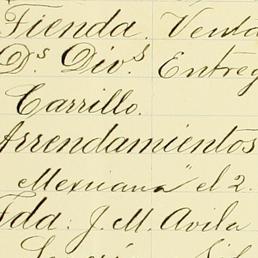 Tienda. Venta
D.s Div.s Entreg
Carrillo.
Arrendamientos
Mexicana" el 2.
da: J. M. Avila